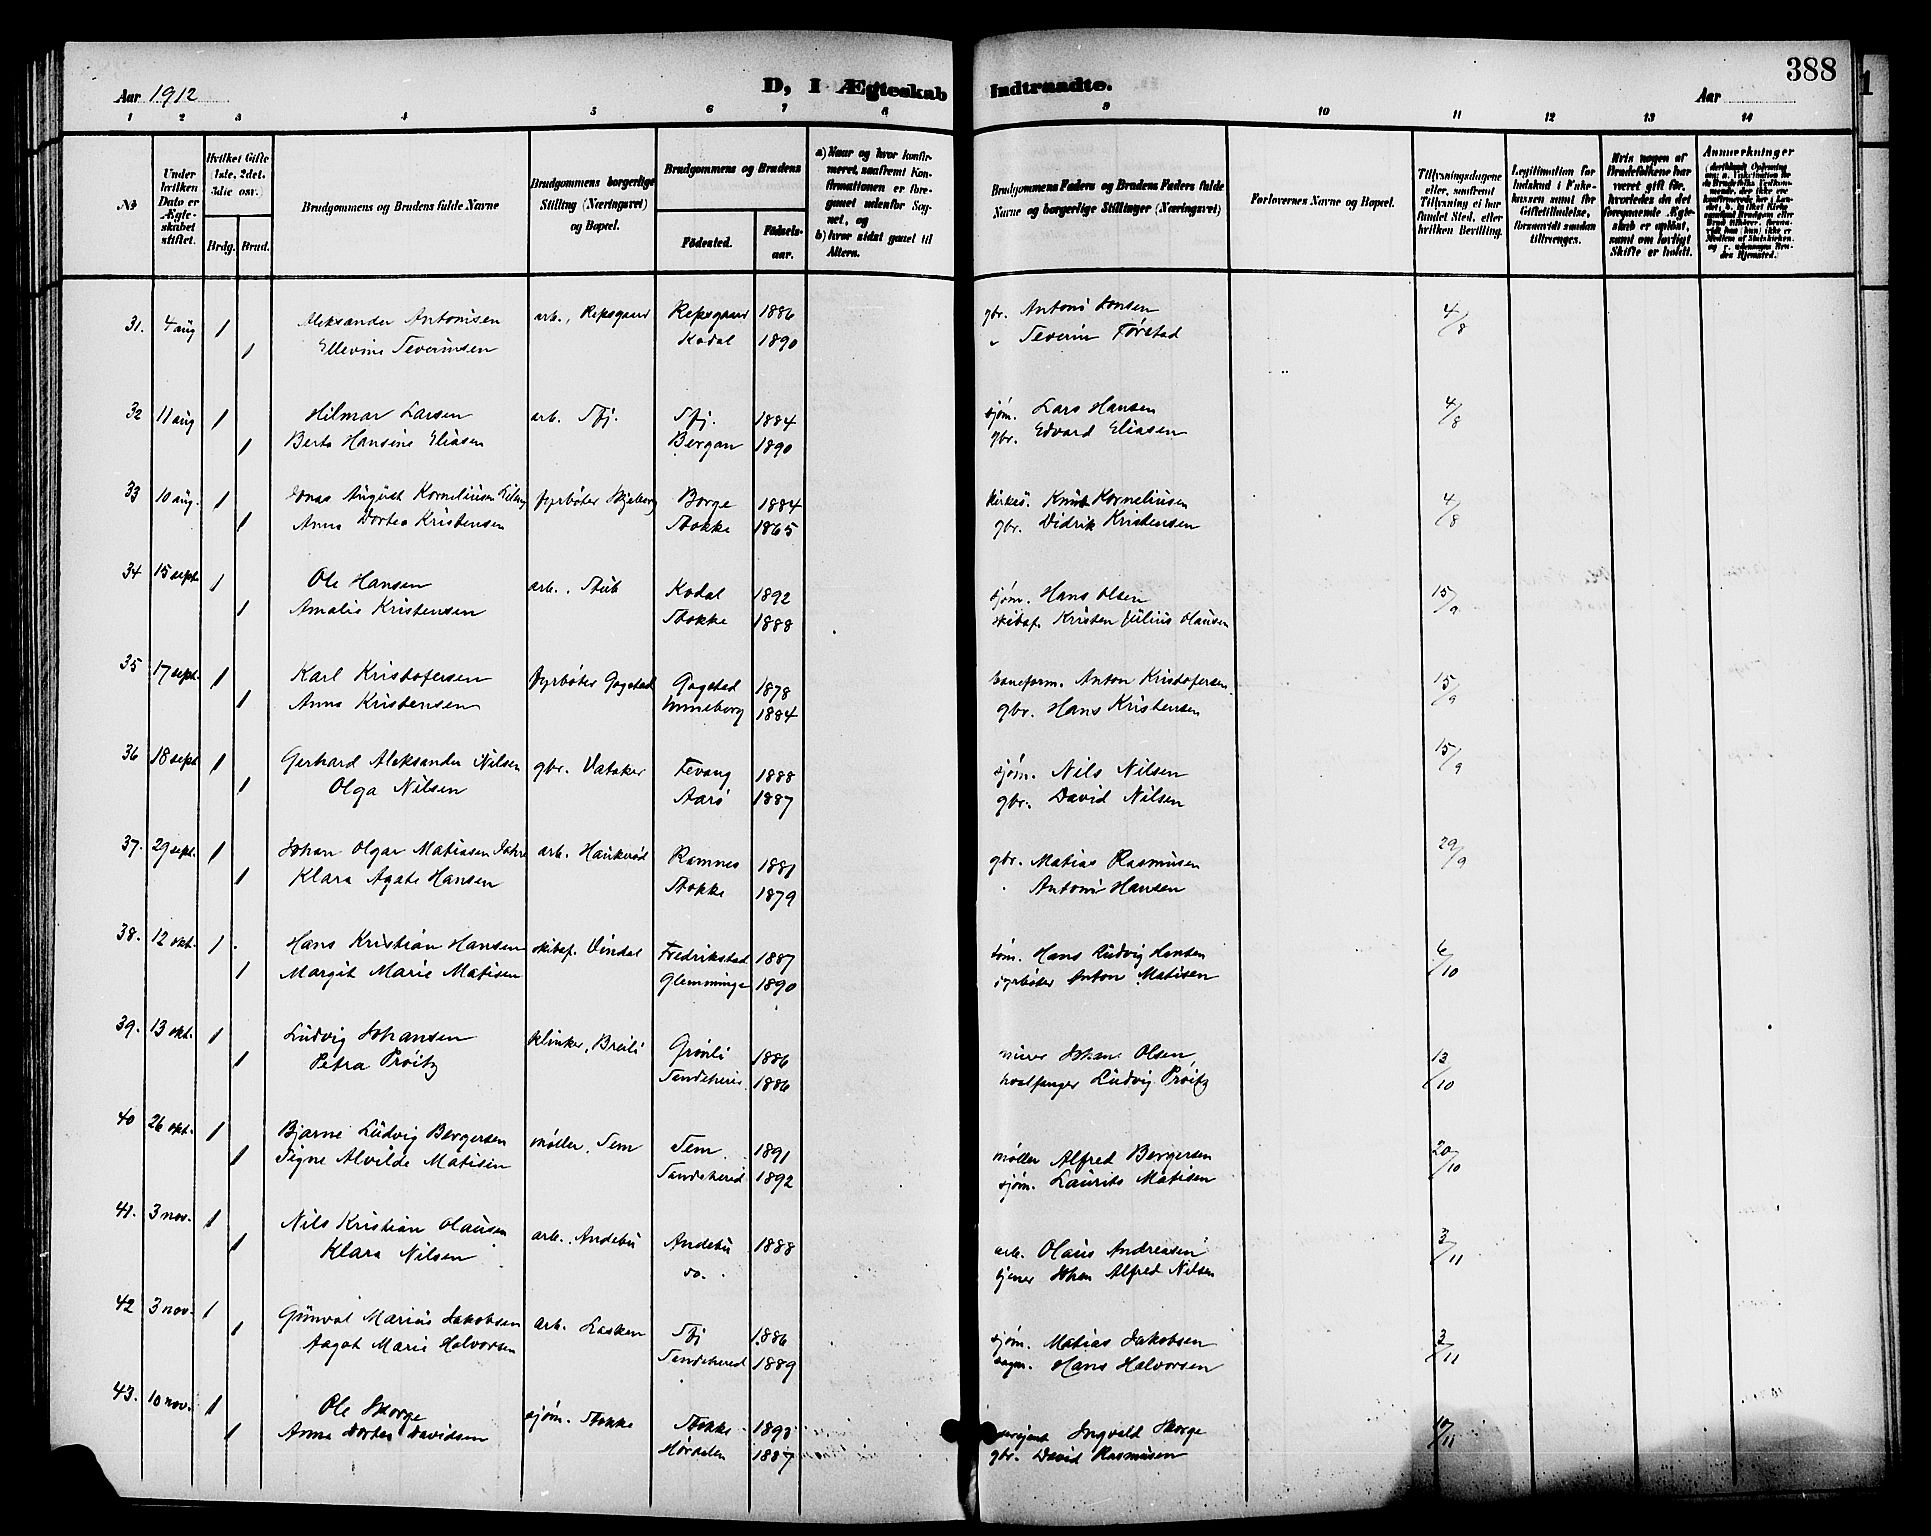 388
Aar 1912
D, I Ægteskab Indtraadte.
Aar
1 2 3 4 5 6 7 8 9 10 11 12 13 14
No
Under hvilken Dato er Ægteskabet stiftet.
Hvilket Gifte 1ste, 2det, 3die osv.
Brdg. Brud.
Brudgommens og Brudens fulde Navne
Brudgommens borgerlige Stilling (Næringsvei) og Bopæl.
Brudgommens og Brudens
Födested.
Födselsaar.
a) Naar og hvor konfirmeret, saafremt Konfirmationen er foregaaet udenfor Sognet, og
b) hvor sidst gaaet til Alters.
Brudgommens Faders og Brudens Faders fulde Navne og borgerlige Stillinger (Næringsvei)
Forlovernes Navne og Bopæl.
Tillysningsdagene eller, saafremt Tillysning ei har fundet Sted, efter hvilken Bevilling.
Legitimation for Indskud i Enkekassen samt for Giftetilladelse, forsaavidt saadan tiltrænges.
Hvis nogen af Brudefolkene har været gift för, hvorledes da det foregaaende Ægteskab er oplöst, samt om lovligt Skifte er holdt.
Anmærkninger
31. 4 aug 1 Aleksander Antonisen arb., Repsgaard Repsgaard 1886 gbr. Antoni Jonsen 4/8
1 Ellevine Severinsen Kodal 1890 " Severin Førstad
32 11 aug 1 Hilmar Larsen arb. Sfj. Sfj. 1884 sjøm. Lars Hansen 4/8
1 Berta Hansine Eliasen Bergan 1890 gbr. Edvard Eliasen
33 10 aug. 1 Jonas August Korneliusen fyrbøter Skjeberg Borge 1884 kirkes. Knut Korneliusen 4/8
1 Anna Dortea Kristensen Stokke 1865 gbr. Didrik Kristensen
34 15 sept. 1 Ole Hansen arb., Stub Kodal 1892 sjøm. Hans Olsen 15/9
1 Amalie Kristensen Stokke 1888 skibsf. Kristen Julius Hansen
35 17 sept. 1 Karl Kristofersen fyrbøter Gogstad Gogstad 1878 baneform. Anton Kristofersen 15/9
1 Anna Kristensen Unneberg 1884 gbr. Hans Kristensen
36 18 sept 1 Gerhard Aleksander Nilsen gbr. Vataker Fevang 1888 sjøm. Nils Nilsen 15/9
1 Olga Nilsen Aarø 1887 gbr. David Nilsen
37. 29 sept. 1 Johan Olgar Matiasen arb. Haukerød Ramnes 1881 gbr. Matias Rasmusen 29/9
1 Klara Agate Hansen Stokke 1879 Antoni Hansen
38. 12 okt. 1 Hans Kristian Hansen skibsf. Vindal Fredrikstad 1887 tøm. Hans Ludvig Hansen 6/10
1 Margit Marie Matisen Glemminge 1890 fyrbøter Anton Matisen
39. 13 okt. 1 Ludvig Johansen klinker, Breili Grønli 1886 murer Johan Olsen 13/10
1 Petra Prøitz Sandeherre. 1886 hvalfanger Ludvig Prøitz
40 26 okt. 1 Bjarne Ludvig Bergersen møller, Sem Sem 1891 møller Alfred Bergersen 20/10
1 Signe Alvilde Matisen Sandeherred 1892 sjøm. Laurits Matisen
41. 3 nov. 1 Nils Kristian Olausen arb., Andebu Andebu 1888 arb. Olaus Andreasen 3/11
1 Klara Nilsen do. tjener Johan Alfred Nilsen
42 3 nov. 1 Gunval Marius Jakobsen arb. Lasken Sfj 1886 sjøm. Matias Jakobsen 3/11
1 Aagot Marie Halvorsen Sandeherred 1889 Hans Halvorsen
43. 10 nov. 1 Ole Skorge sjøm. Stokke Stokke Ingvald Skorge 10/11
1 Anna Dortea Davidsen Hørdalen 1887 gbr. David Rasmusen